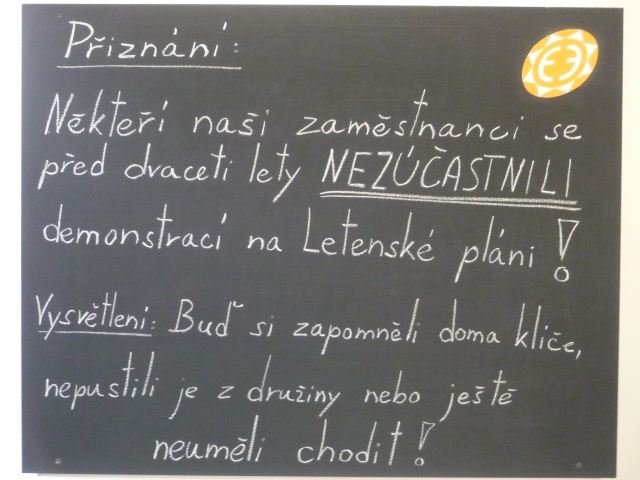 Přiznání:
Někteří naši zaměstnanci se
před dvaceti lety NEZÚČASTNILI
demonstrací na Letenské pláni!
Vysvětlení: Buď si zapomněli doma klíče,
nepustili je z družiny nebo ještě
neuměli chodit!